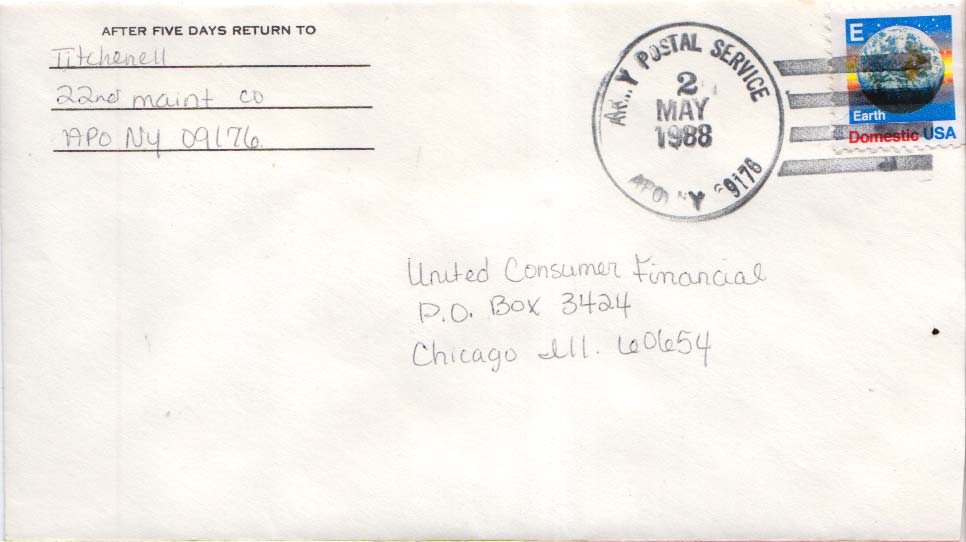 AFTER FIVE DAYS RETURN TO
Titchenell
22nd maint co
APO NY 09176
POSTAL SERVICE
2
MAY
1988
APO NY 09176
E
Earth
Domestic USA
United Consumer Financial
P.O. Box 3424
Chicago Ill. 60654